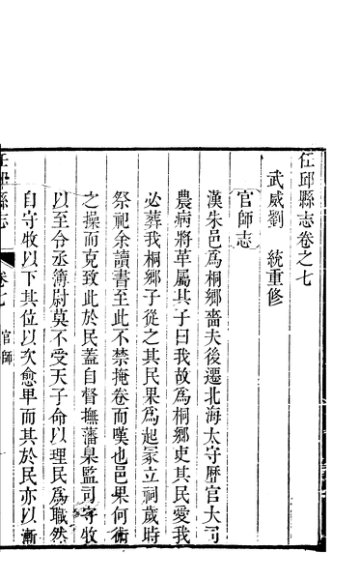 任邱縣志卷之七
武威劉　統重修
官師志
漢朱邑爲桐鄉嗇夫後遷北海太守歷官大司
農病將革屬其子曰我故爲桐鄉吏其民愛我
必葬我桐鄉子從之其民果爲起冢立祠歲時
祭祀余讀書至此不禁掩卷而嘆也邑果何術
之操而克致此於民蓋自督撫藩臬監司守牧
以至令丞簿尉莫不受天子命以理民爲職然
自守牧以下其位以次愈卑而其於民亦以漸
任邱縣志
卷七
官師